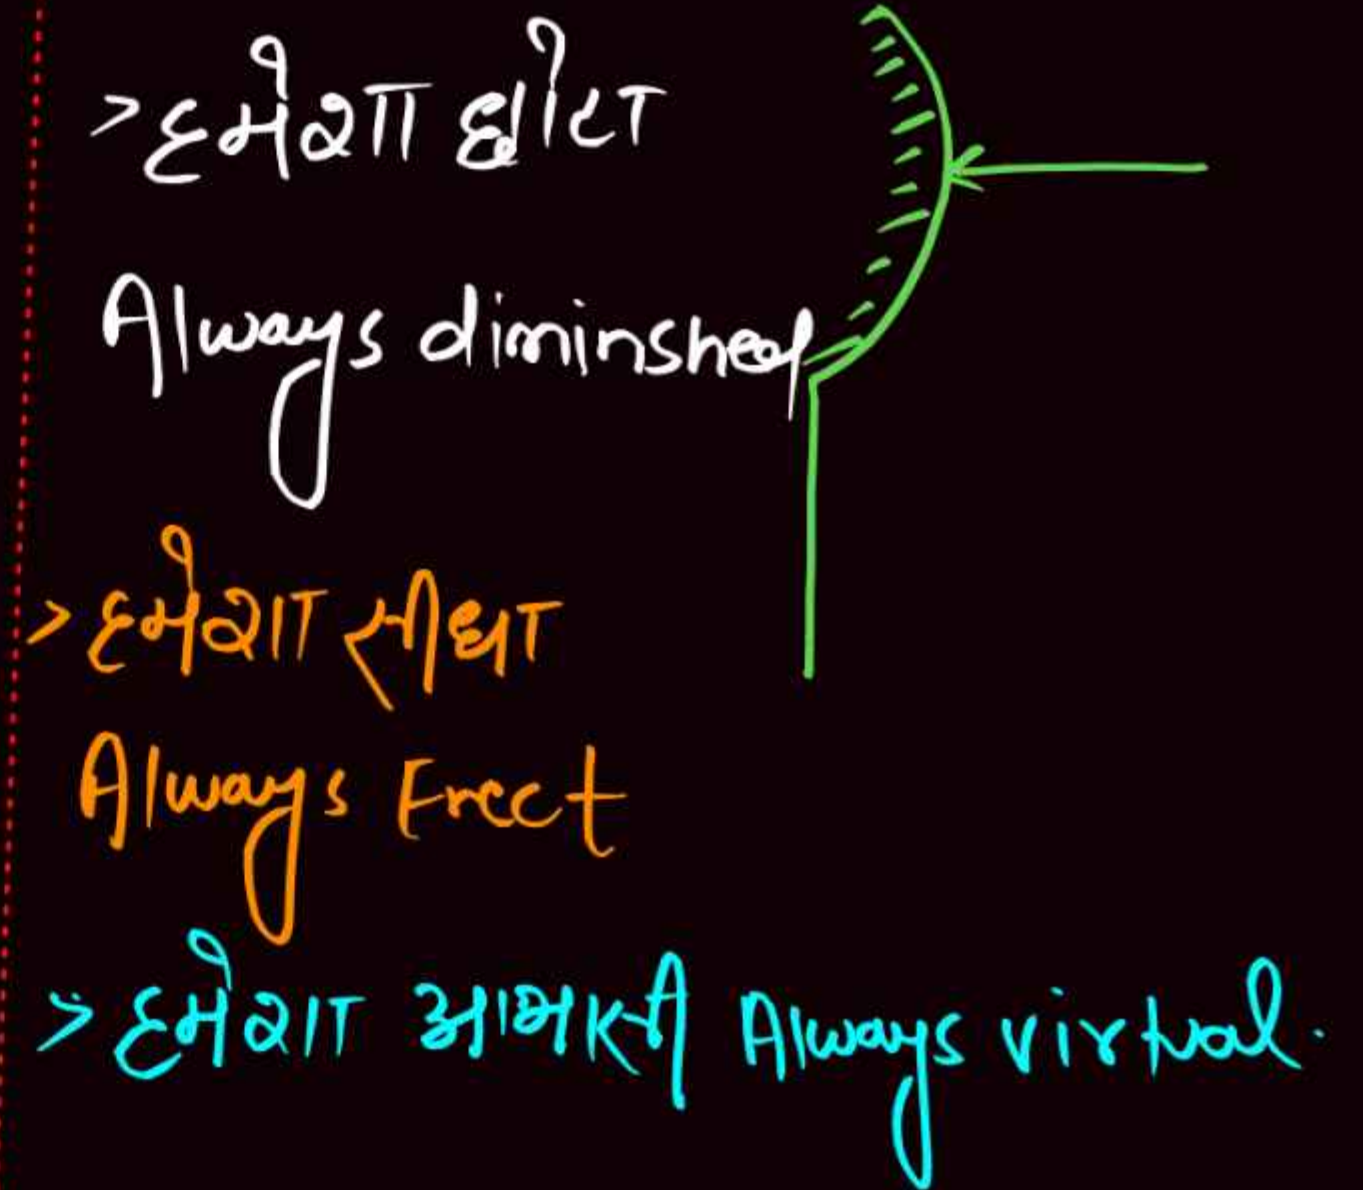 >हमेशा छोटा
Always diminshed
>हमेशा सीधा
Always Erect
>हमेशा आभासी Always virtual.